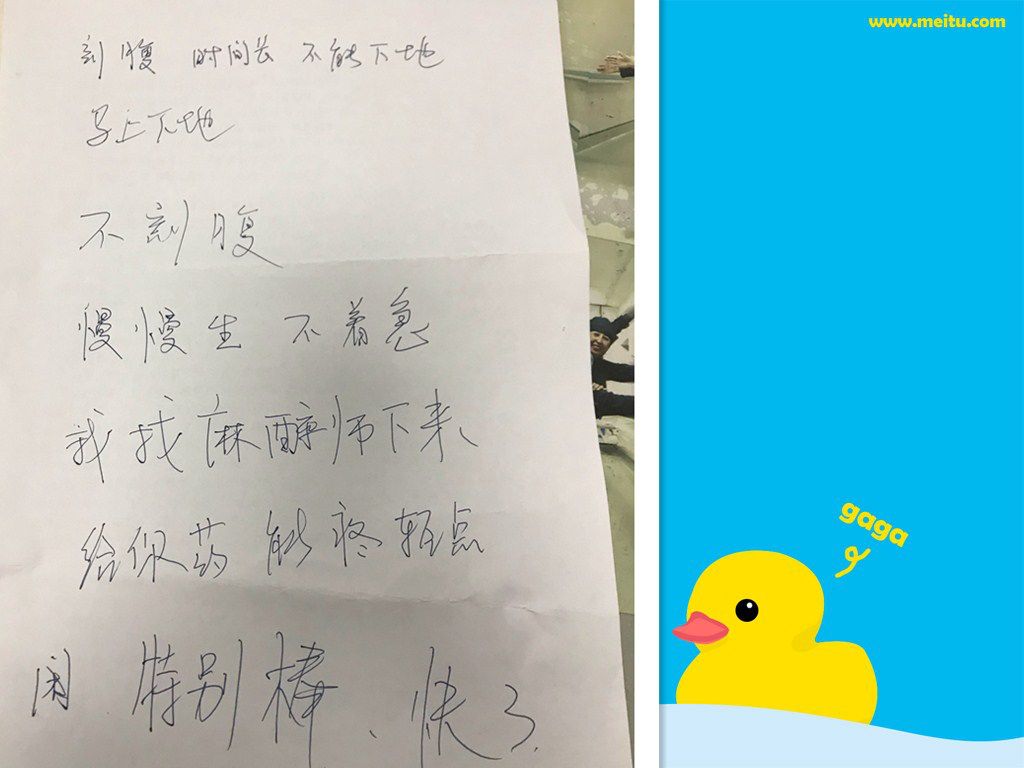 刻腹 时间长 不能下地
马上下地
不刻腹
慢慢生 不着急
我找麻醉师下来
给你药 能疼轻点
特别棒、快了.
www.meitu.com
gaga